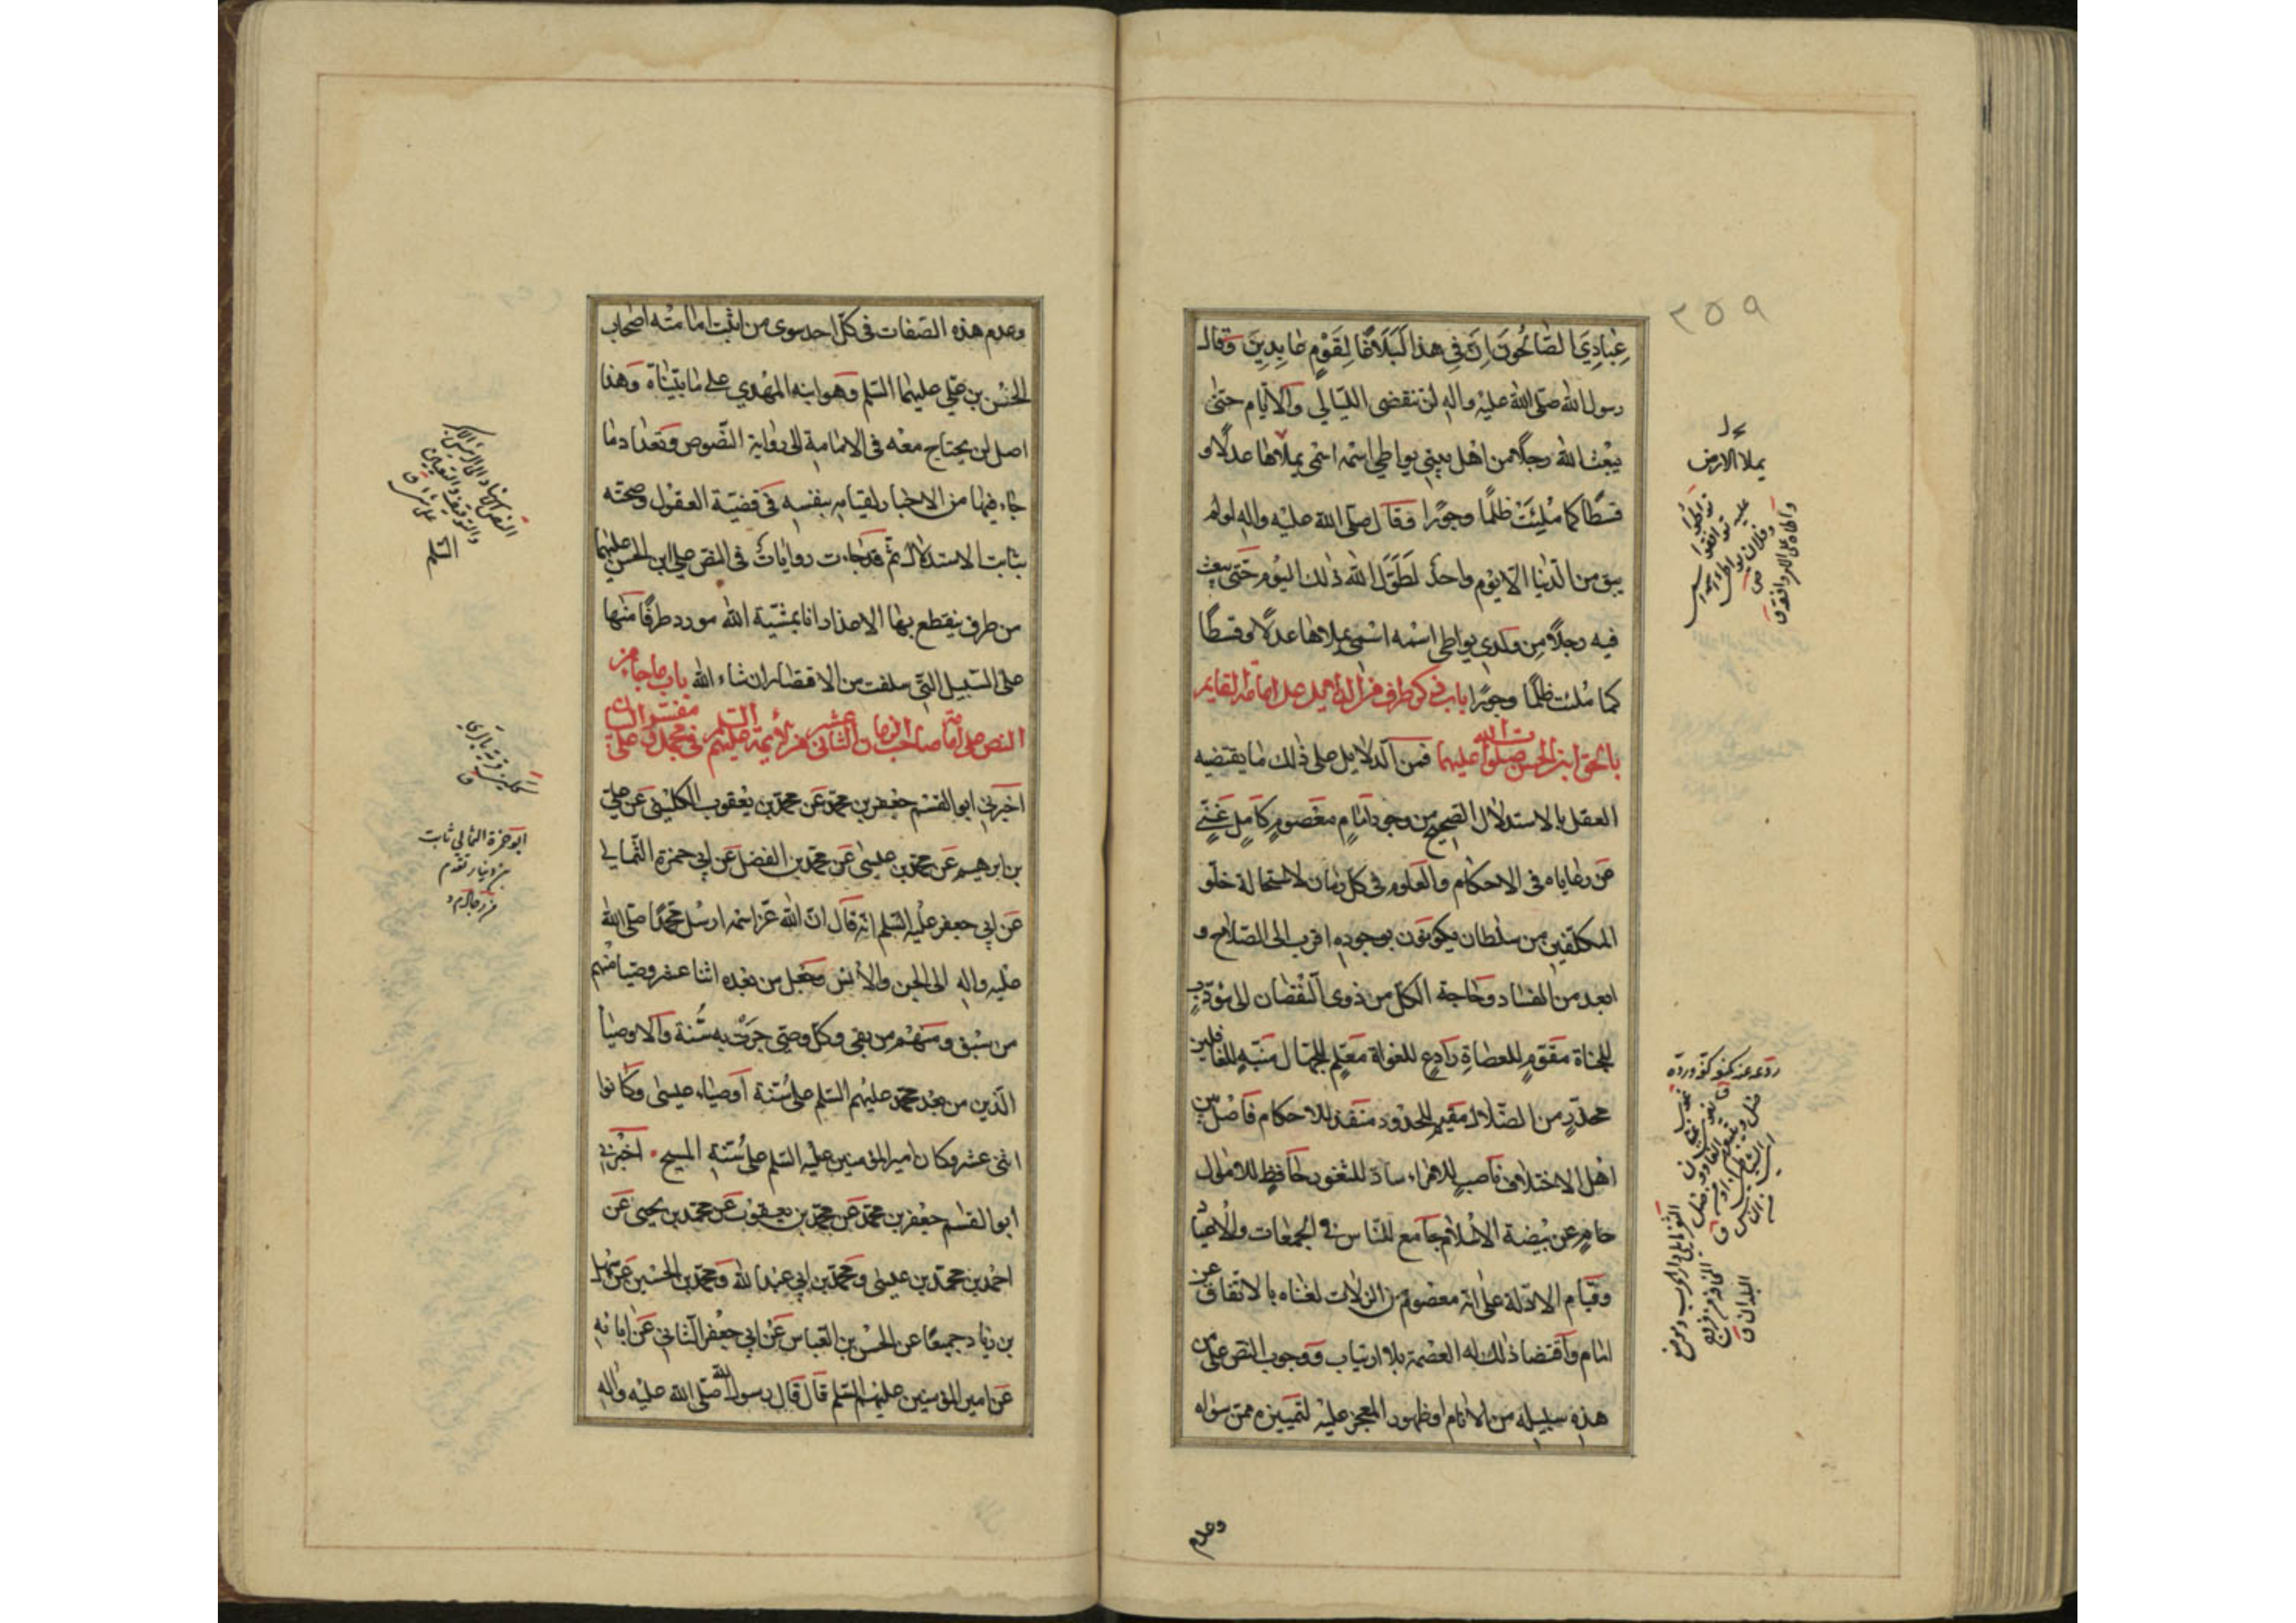 ٣٥٩
عِبادِيَ الصّالحُونَ اِنَّ فِي هذا لَبَلاغًا لِقَوْمٍ عابِدِينَ وقال
رسول الله صلّى الله عليه واله لن تنقضى الليالي والأيام حتىٰ
يبعث الله رجلًا من اهل بيتي يواطي اسمه اسمي يملأها عدلًا و
قسطًا كما مُلِئَتْ ظلمًا وجورًا وقال صلّى الله عليه واله لو لم
يبق من الدّنيا الّا يوم واحد لَطَوَّل الله ذلك اليوم حتّى يبعث
فيه رجلًا من ولدي يواطي اسمه اسمي يملاها عدلًا وقسطًا
كما مُلئت ظلمًا وجورًا باب ذكر طرف من الدلايل على امامة القايم
بالحق ابن الحسن صلوات الله عليهما فمن الدلايل على ذلك ما يقتضيه
العقل بالاستدلال الصحيح من وجود امام معصوم كامل غنيّ
عن رعاياه فى الاحكام والعلوم فى كل زمان لاستحالة خلو
المكلفين من سلطان يكونون بوجوده اقرب الى الصلاح و
ابعد من الفساد وحاجة الكل من ذوى النقصان الى مؤدّب
للجناة مقوّم للعصاة رادع للغواة معلّم للجهال منبّه للغافلين
محذّر من الضلال مقيم للحدود منفذ للاحكام فاصل بين
اهل الاختلاف ناصب للامراء سادّ للثغور حافظ للاموال
حام عن بيضة الاسلام جامع للناس فى الجمعات والاعياد
وقيام الادلة على انه معصوم من الزلات لغناه بالاتفاق عن
امام واقتضا ذلك له العصمة بلا ارتياب ووجوب النص على من
هذه سبيله من الانام او ظهور المعجز عليه لتمييزه ممن سواه
وعدم
يملا الارض
وعدم هذه الصفات فى كلّ احد سوى من اثبت امامته اصحاب
الحسن بن علي عليهما السّلم وهو ابنه المهدي على ما بيّنّاه وهذا
اصل لن يحتاج معه فى الامامة الى رواية النصوص وتعداد ما
جاء فيها من الاخبار لقيامه بنفسه فى قضيّة العقول وصحته
بثابت الاستدلال ثم قد جاءت روايات فى النص على ابن الحسن عليهما
من طرف ينقطع بها الاعذار انا بمشيّة الله مورد طرفًا منها
على السّبيل التي سلفت من الاقتصار ان شاء الله باب ما جاء من
النص على امامة صاحب الزمان الثاني عشر من الأيمة عليهم السلم
اخبرني ابو القسم جعفر بن محمّد عن محمد بن يعقوب الكليني عن علي
بن ابرهيم عن محمد بن عيسى عن محمد بن الفضل عن ابي حمزة الثمالي
عن ابي جعفر عليه السّلم انه قال انّ الله عزّ اسمه ارسل محمّدًا صلى الله
عليه واله الى الجن والأنس وجعل من بعده اثنا عشر وصيا منهم
من سبق ومنهم من بقى وكل وصى جرت به سُنّة والاوصيا
الّذين من بعد محمّد عليهم السّلم على سُنّة اوصياء عيسى وكانوا
اثنى عشر وكان امير المؤمنين عليه السّلم على سُنّة المسيح اخبرني
ابو القسم جعفر بن محمّد عن محمّد بن يعقوب عن محمد بن يحيى عن
احمد بن محمد بن عيسى ومحمد بن ابي عبد الله ومحمد بن الحسين عن سهل
بن زياد جميعًا عن الحسن بن العباس عن ابي جعفر الثاني عن ابائه
عن امير المؤمنين عليهم السّلم قال قال رسول الله صلّى الله عليه واله
ابو حمزة الثمالي ثابت
بن دينار تقدم